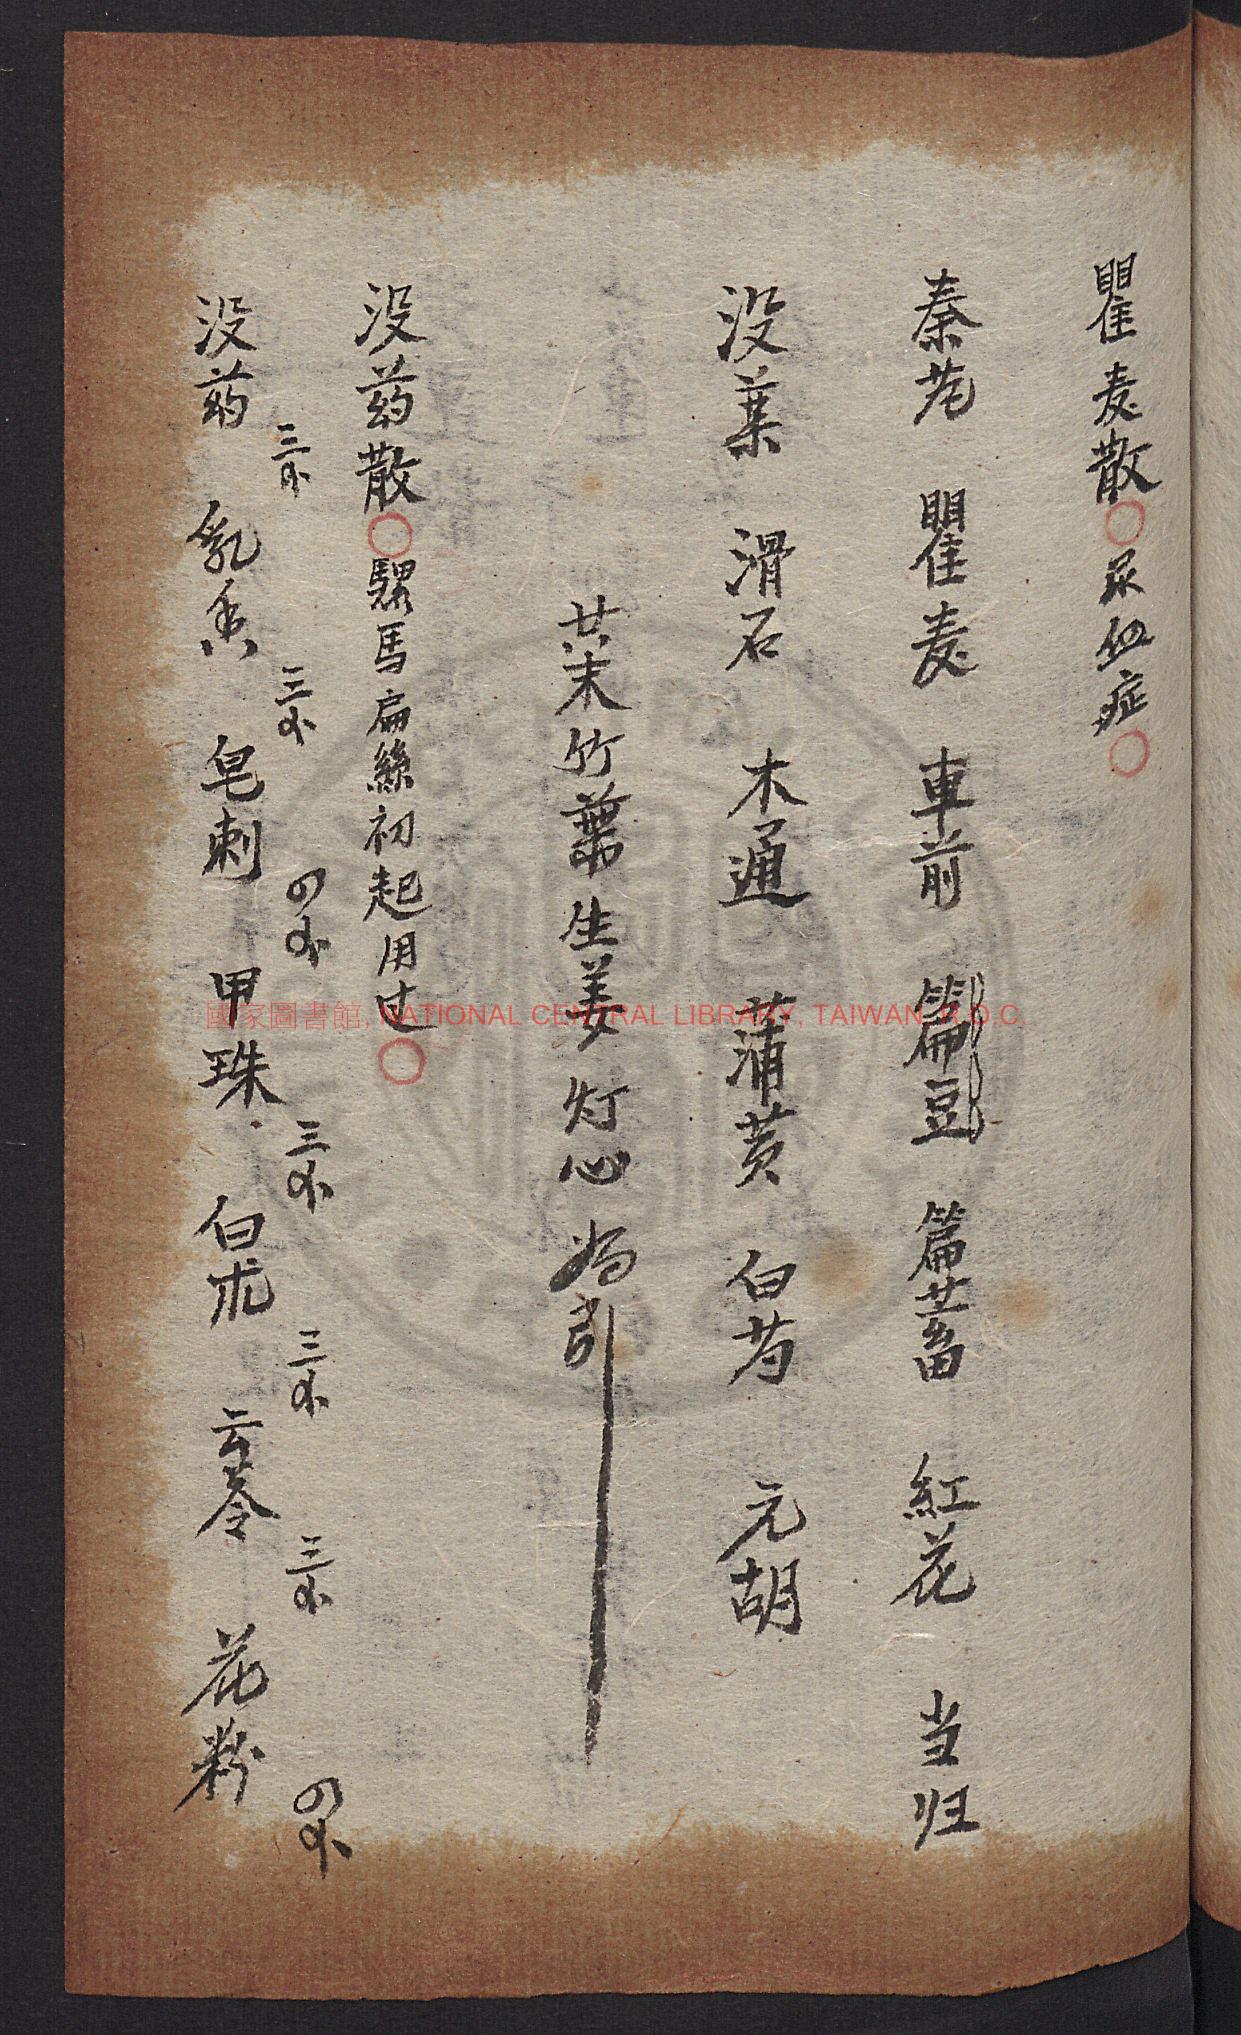 瞿麦散○尿血症○
秦艽 瞿麦 車前 篇豆 篇蓄 紅花 当归
没葉 滑石 木通 蒲黄 白芍 元胡
共末竹葉生姜灯心為引
没药散○騾馬扁絲初起用过○
没药 三 乳香 三 皂刺 四 甲珠 三 白朮 三 云苓 三 花粉 四
國家圖書館, NATIONAL CENTRAL LIBRARY, TAIWAN, R.O.C.